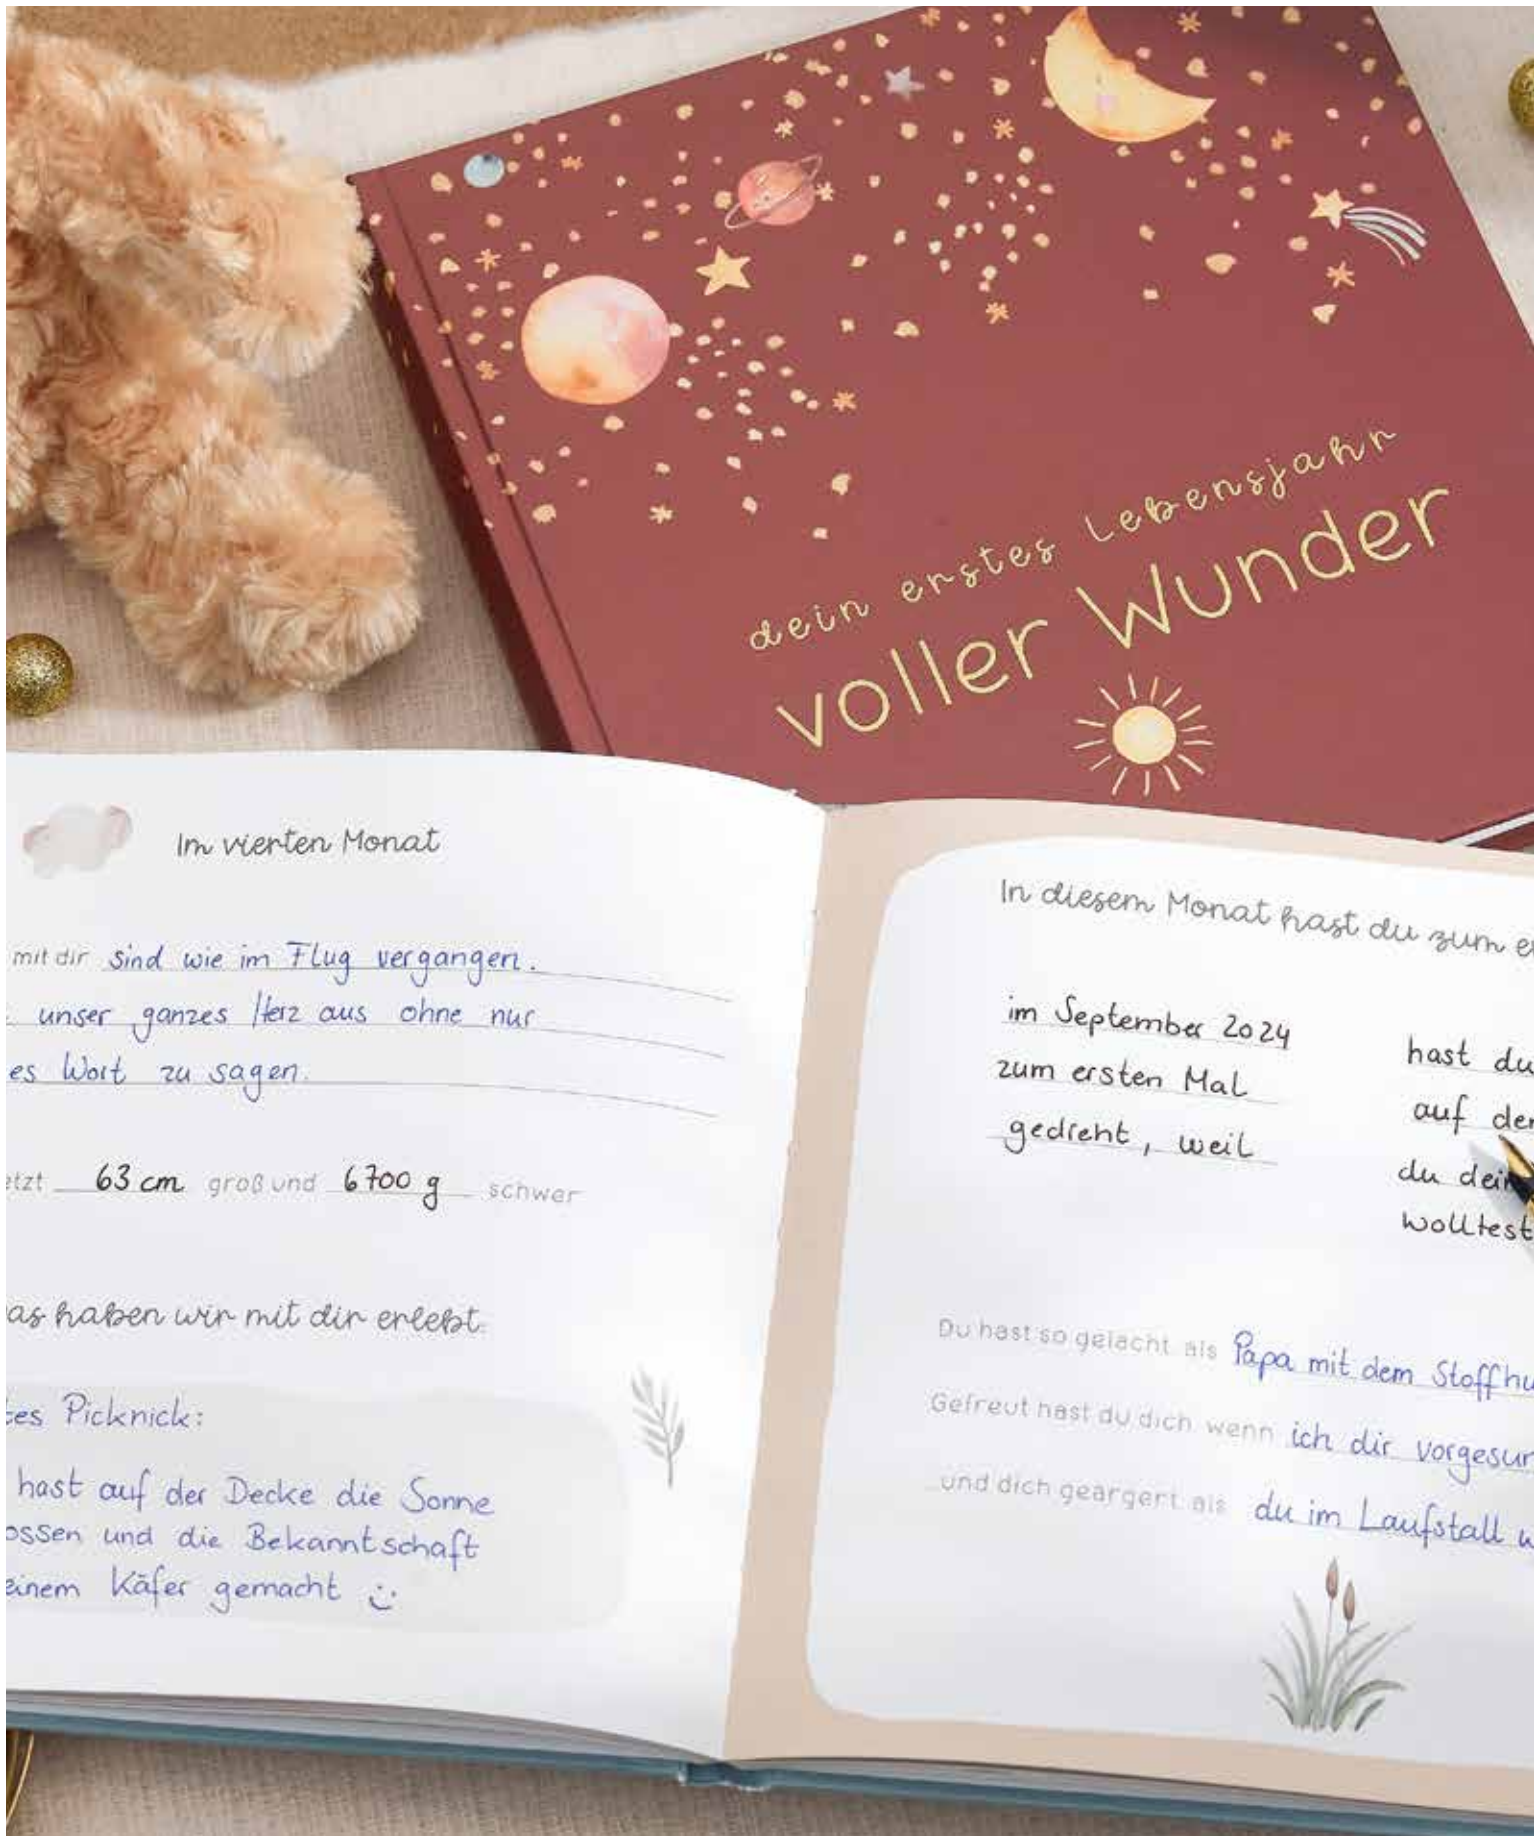 dein erstes Lebensjahr
voller Wunder
Im vierten Monat
mit dir sind wie im Flug vergangen.
unser ganzes Herz aus ohne nur
es Wort zu sagen.
etzt 63 cm groß und 6700 g schwer
as haben wir mit dir erlebt
tes Picknick:
hast auf der Decke die Sonne
ossen und die Bekanntschaft
einem Käfer gemacht
In diesem Monat hast du zum e
im September 2024
zum ersten Mal
gedreht, weil
hast du
auf de
du dei
wolltest
Du hast so gelacht als Papa mit dem Stoffhu
Gefreut hast du dich wenn ich dir vorgesun
und dich geärgert als du im Laufstall w